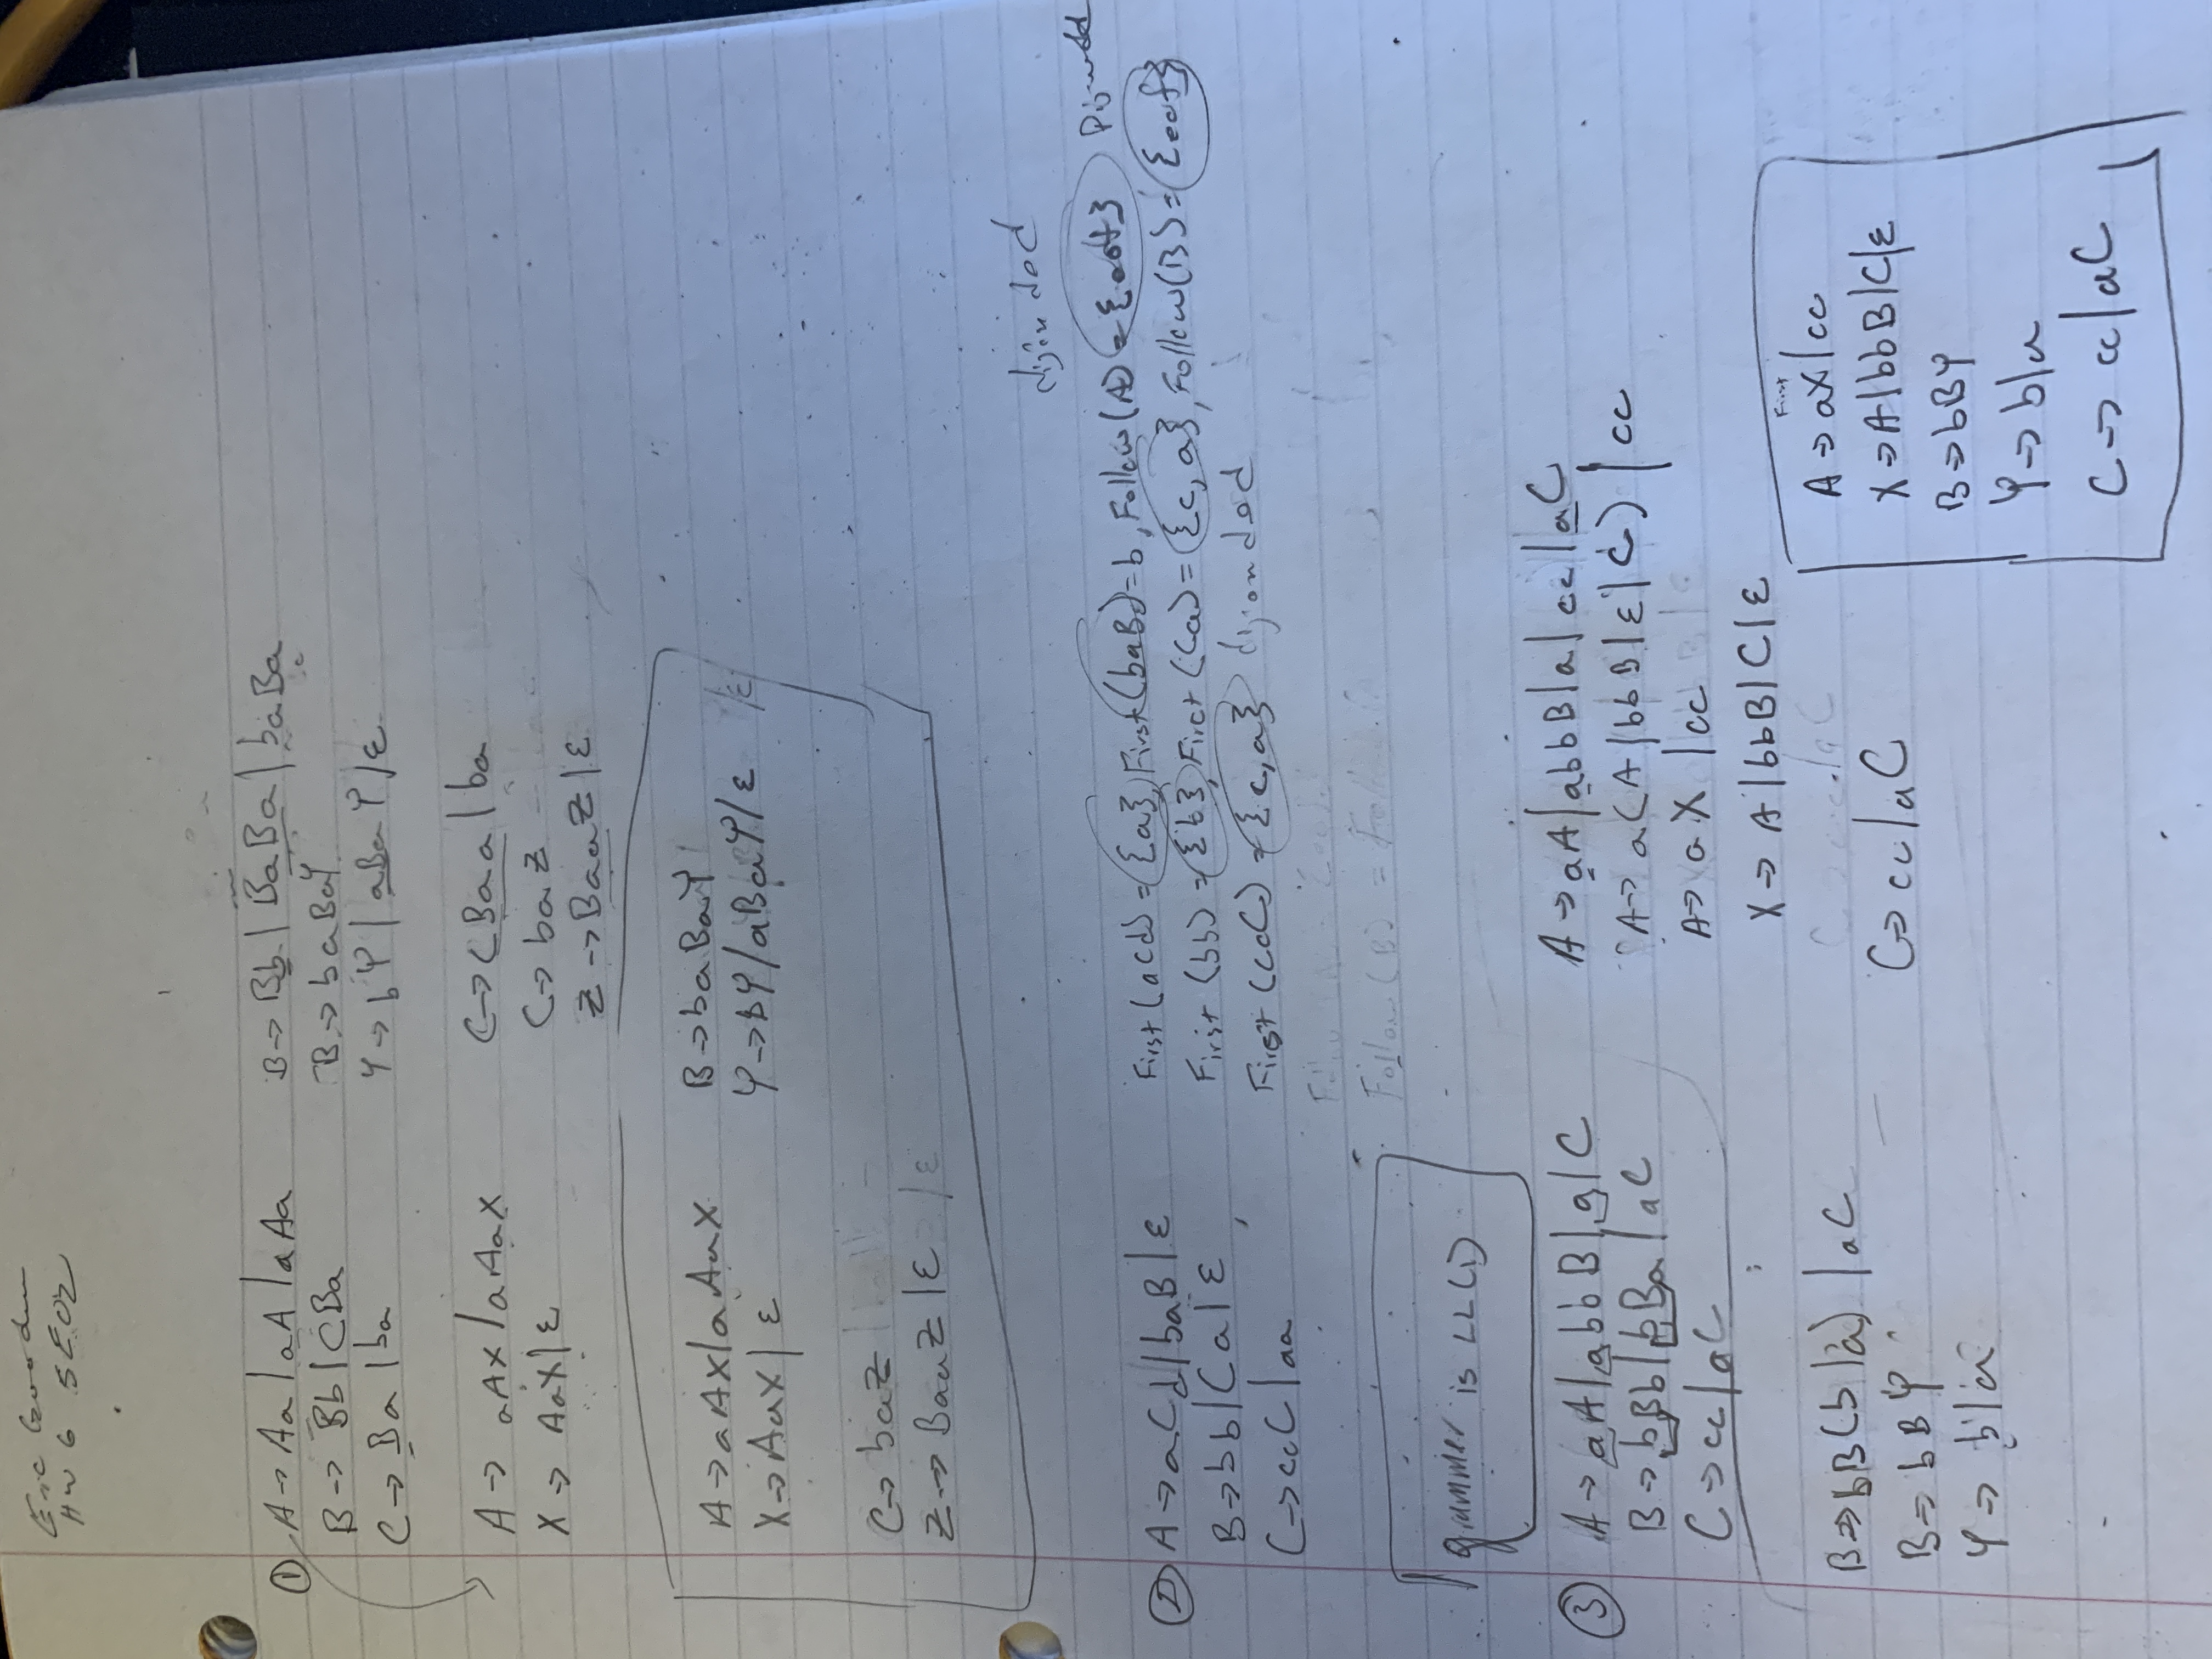 Eric
HW 6 SE02
① A → Aa | aA | aAa
B → Bb | CBa
C → Ba | ba
B → Bb | BaBa | baBa
B → baBaY
Y → bY | aBaY | ε
A → aAX | aAaX
X → AaX | ε
C → CBaa | ba
C → baZ
Z → BaaZ | ε
A → aAX | aAaX
X → AaX | ε
B → baBaY
Y → bY / aBaY / ε / ε
C → baZ
Z → BaaZ | ε / ε
② A → aCd | baB | ε
B → bb | Ca | ε
C → ccC | aa
First (aCd) = {a}, First (baB) = b, Follow (A) = {eof}
First (bb) = {b}, First (Ca) = {c, a}, Follow (B) = {eof}
First (ccC) = {c, a}
Follow (B) =
grammer is LL(1)
③ A → aA | abbB | a | C
B → bBb | bBa | aC
C → cc | aC
A → aA | abbB | a | cc | aC
A → a(A | bbB | ε | C) | cc
A → aX | cc
X → A | bbB | C | ε
B → bB(b | a) | aC
B → bBY
Y → b | a
C → cc | aC
First
A → aX | cc
X → A | bbB | C | ε
B → bBY
Y → b | a
C → cc | aC